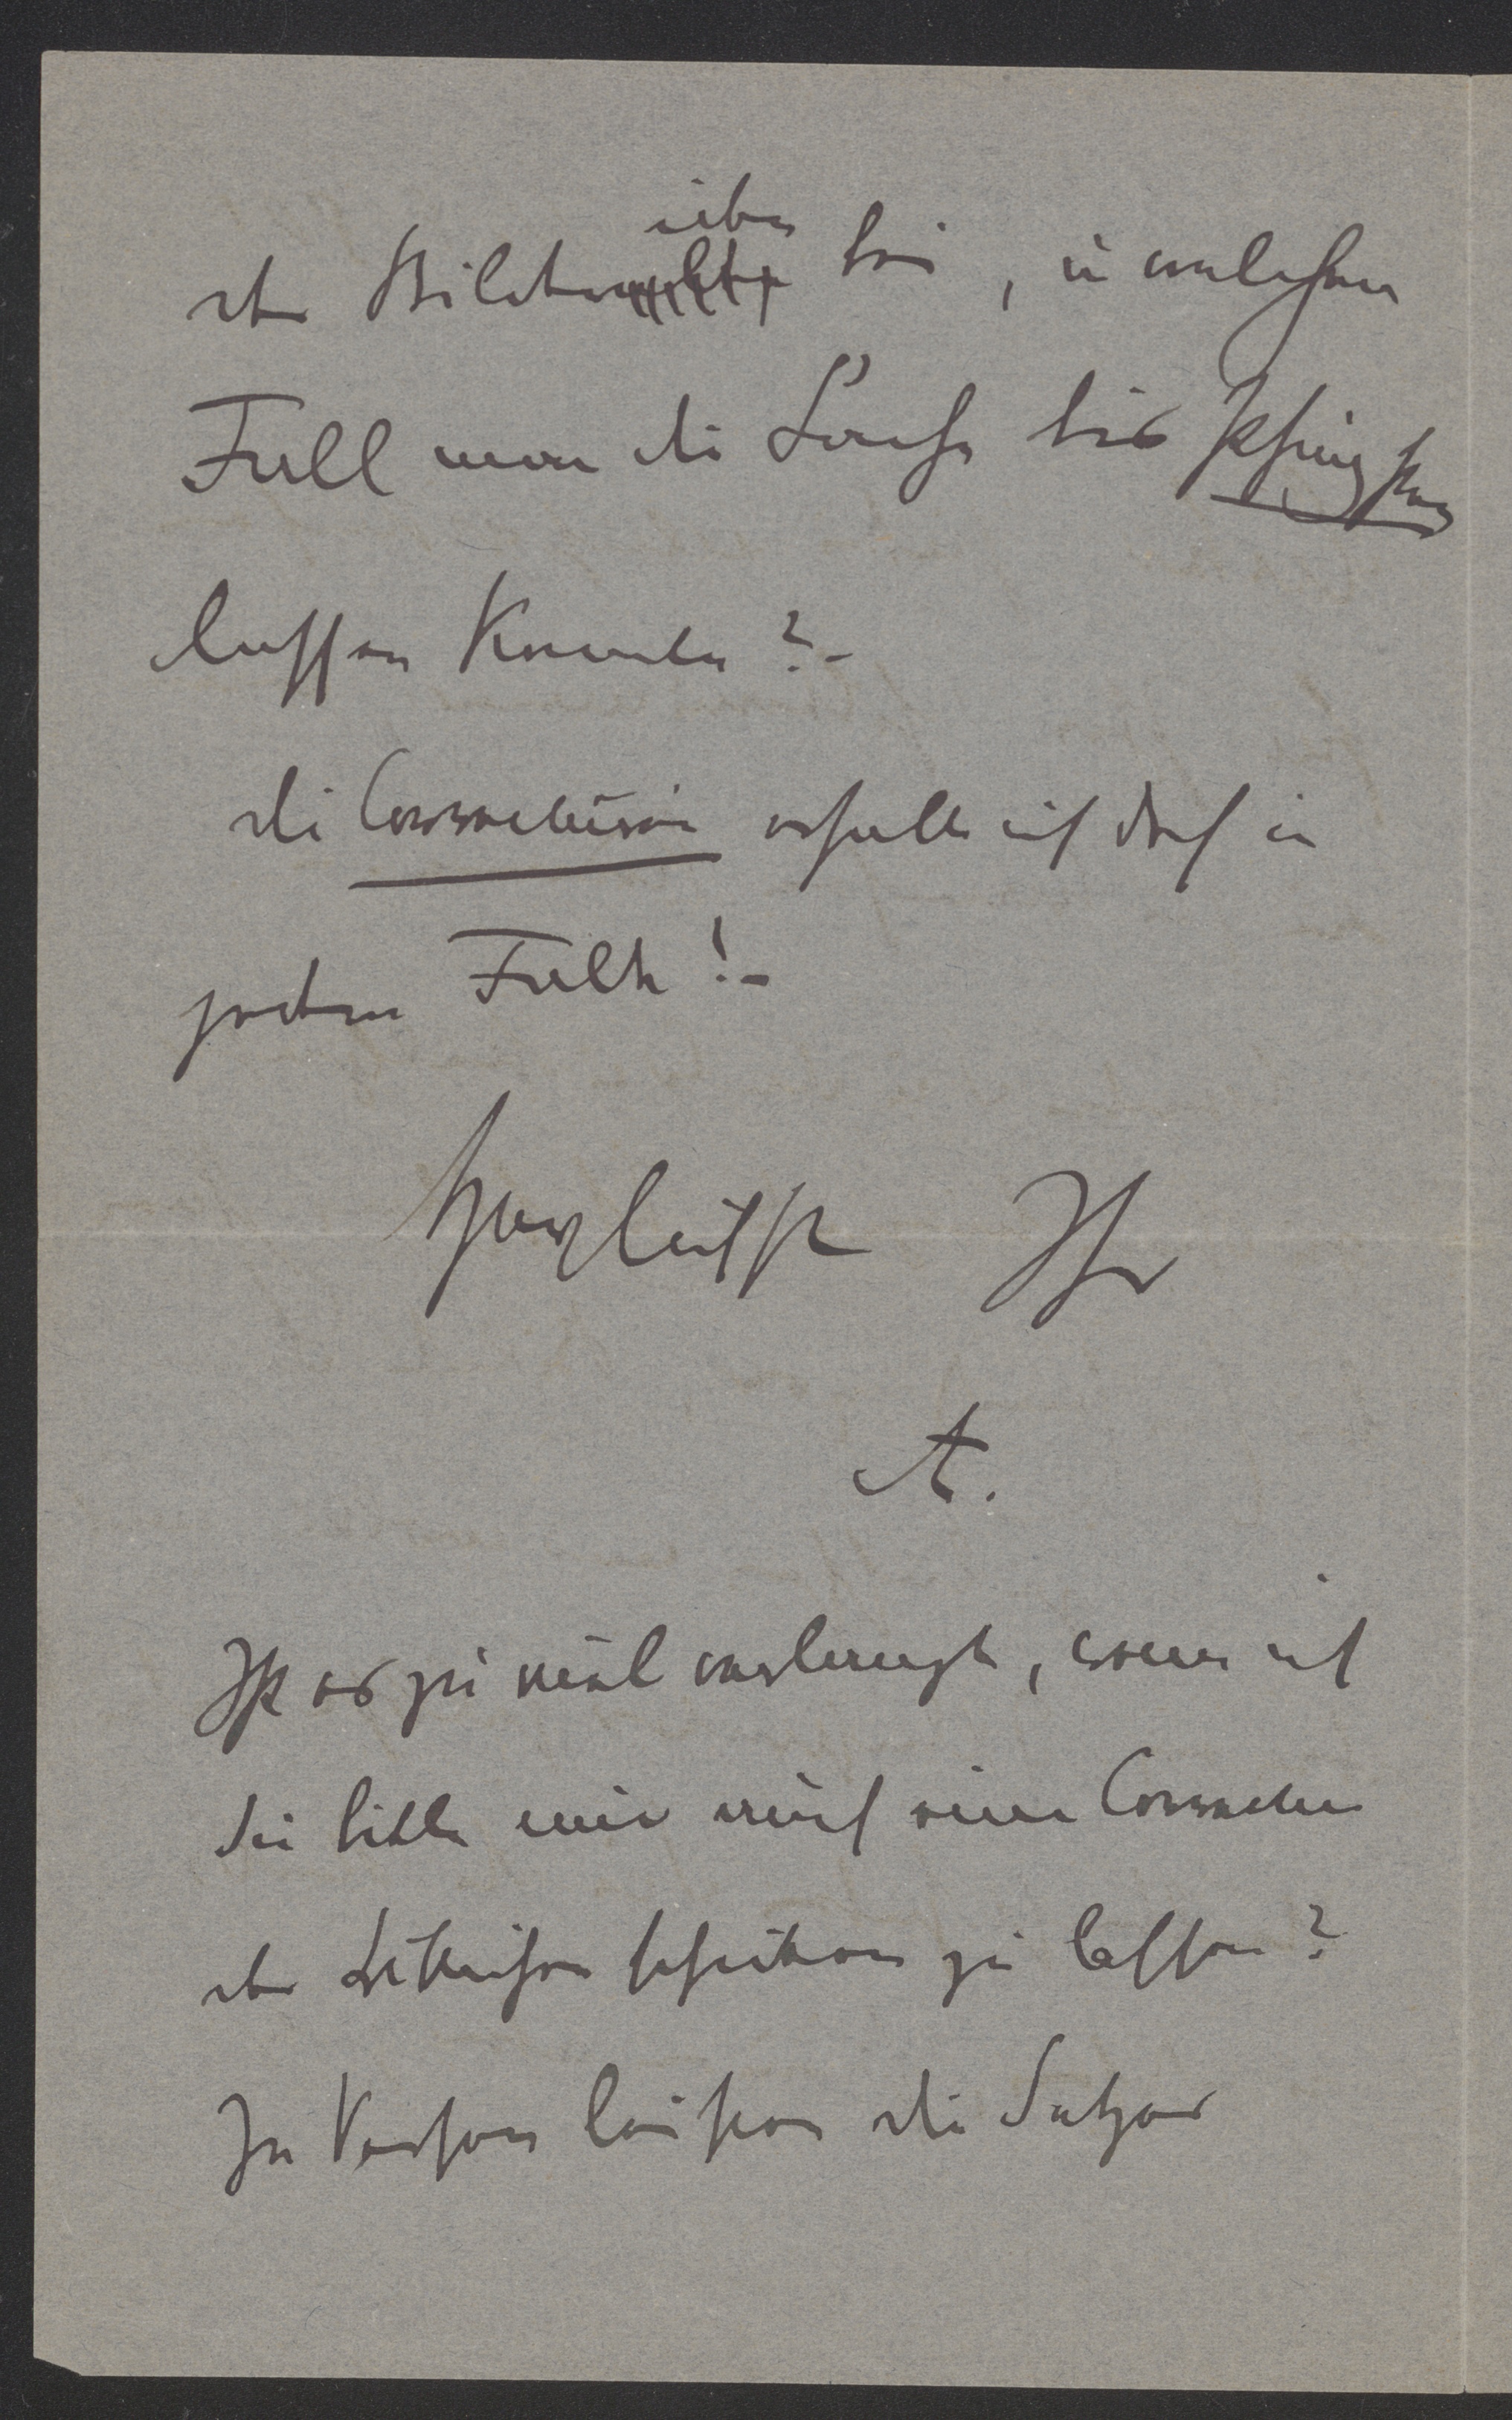 über
der Bilder bei, in welchem
Fall man die Sache bis Pfingsten
lassen könnte?–
die Correcturen erhalte ich doch in
jedem Falle!–
Herzlichst Ihr
A.
Ist es zu viel verlangt, wenn ich
Sie bitte mir auch eine Correctur
der schicken zu lassen?
In Versen leisten die Setzer